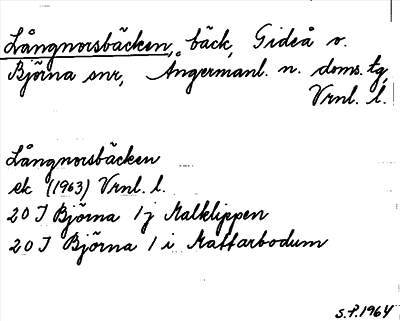 Långnorsbäcken, bäck, Gideå o.
Björna snr, Ångermanl. n. doms. tg,
Vrnl. l.
Långnorsbäcken
ek (1963) Vrnl. l.
20 I Björna 1 j Kalklippen
20 I Björna 1 i Mattarbodum
S.P. 1964